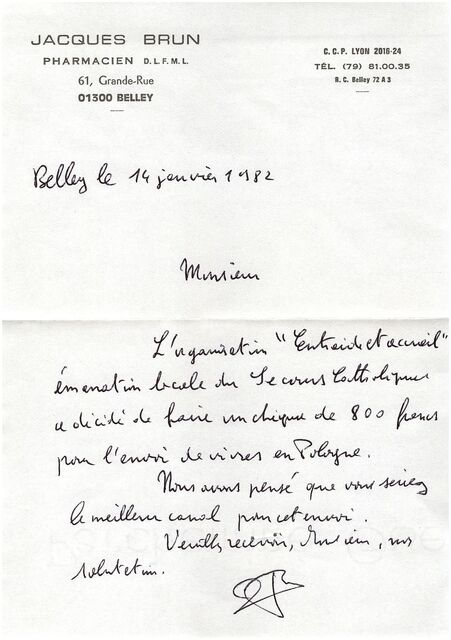 JACQUES BRUN
PHARMACIEN D.L.F.M.L.
61, Grande-Rue
01300 BELLEY
C.C.P. LYON 2016-24
TÉL. (79) 81.00.35
R.C. Belley 72 A 3
Belley le 14 janvier 1982
Monsieur
L'organisation "Entraide et accueil"
émanation locale du Secours Catholique
a décidé de faire un chèque de 800 francs
pour l'envoi de vivres en Pologne.
Nous avons pensé que vous seriez
le meilleur canal pour cet envoi.
Veuillez recevoir, Monsieur, nos
salutation.